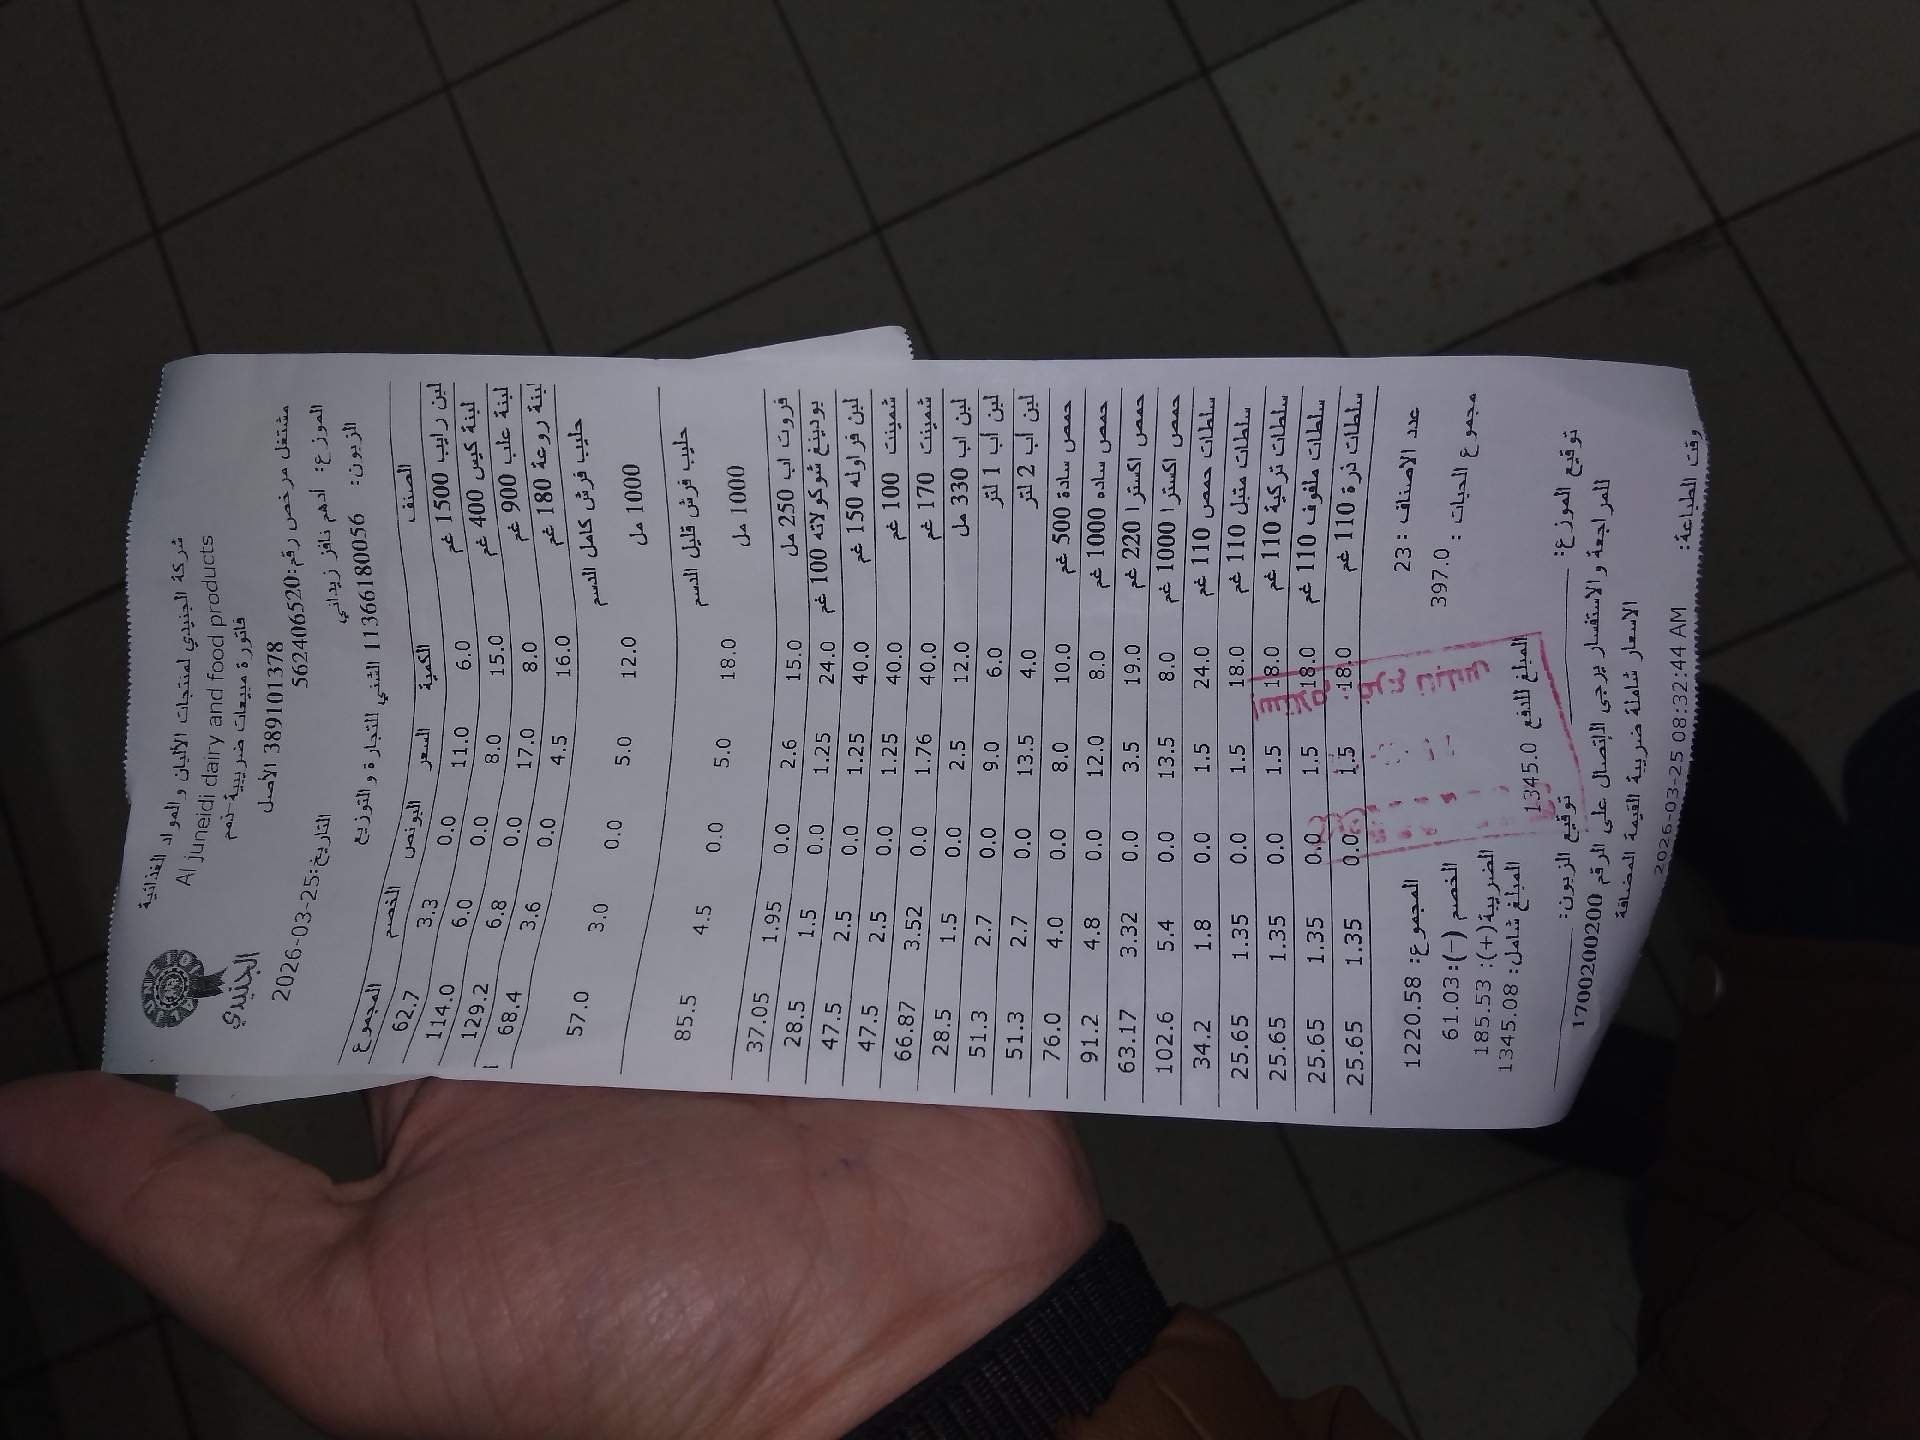 شركة الجنيدي لمنتجات الألبان والمواد الغذائية
Al juneidi dairy and food products
الجنيدي
فاتورة مبيعات ضريبية-نعم
389101378 الأصل
مشتغل مرخص رقم:562406520
التاريخ:2026-03-25
الموزع: ادهم نافز زيداني
الزبون: 113661180056 الشني التجارة والتوزيع
الصنف الكمية السعر البونص الخصم المجموع
لبن رايب 1500 غم 6.0 11.0 0.0 3.3 62.7
لبنة كيس 400 غم 15.0 8.0 0.0 6.0 114.0
لبنة علب 900 غم 8.0 17.0 0.0 6.8 129.2
لبنة روعة 180 غم 16.0 4.5 0.0 3.6 68.4
حليب فرش كامل الدسم 1000 مل 12.0 5.0 0.0 3.0 57.0
حليب فرش قليل الدسم 1000 مل 18.0 5.0 0.0 4.5 85.5
فروت اب 250 مل 15.0 2.6 0.0 1.95 37.05
بودينغ شوكولاته 100 غم 24.0 1.25 0.0 1.5 28.5
لبن فراوله 150 غم 40.0 1.25 0.0 2.5 47.5
شمينت 100 غم 40.0 1.25 0.0 2.5 47.5
شمينت 170 غم 40.0 1.76 0.0 3.52 66.87
لبن اب 330 مل 12.0 2.5 0.0 1.5 28.5
لبن اب 1 لتر 6.0 9.0 0.0 2.7 51.3
لبن اب 2 لتر 4.0 13.5 0.0 2.7 51.3
حمص سادة 500 غم 10.0 8.0 0.0 4.0 76.0
حمص ساده 1000 غم 8.0 12.0 0.0 4.8 91.2
حمص اكسترا 220 غم 19.0 3.5 0.0 3.32 63.17
حمص اكسترا 1000 غم 8.0 13.5 0.0 5.4 102.6
سلطات حمص 110 غم 24.0 1.5 0.0 1.8 34.2
سلطات متبل 110 غم 18.0 1.5 0.0 1.35 25.65
سلطات تركية 110 غم 18.0 1.5 0.0 1.35 25.65
سلطات ملفوف 110 غم 18.0 1.5 0.0 1.35 25.65
سلطات ذرة 110 غم 18.0 1.5 0.0 1.35 25.65
عدد الاصناف : 23 المجموع: 1220.58
مجموع الحبات : 397.0 الخصم (-): 61.03
الضريبة(+): 185.53
المبلغ للدفع 1345.0 المبلغ شامل: 1345.08
توقيع الموزع: توقيع الزبون:
للمراجعة والاستفسار يرجى الاتصال على الرقم 1700200200
الاسعار شاملة ضريبة القيمة المضافة
وقت الطباعة: 2026-03-25 08:32:44 AM